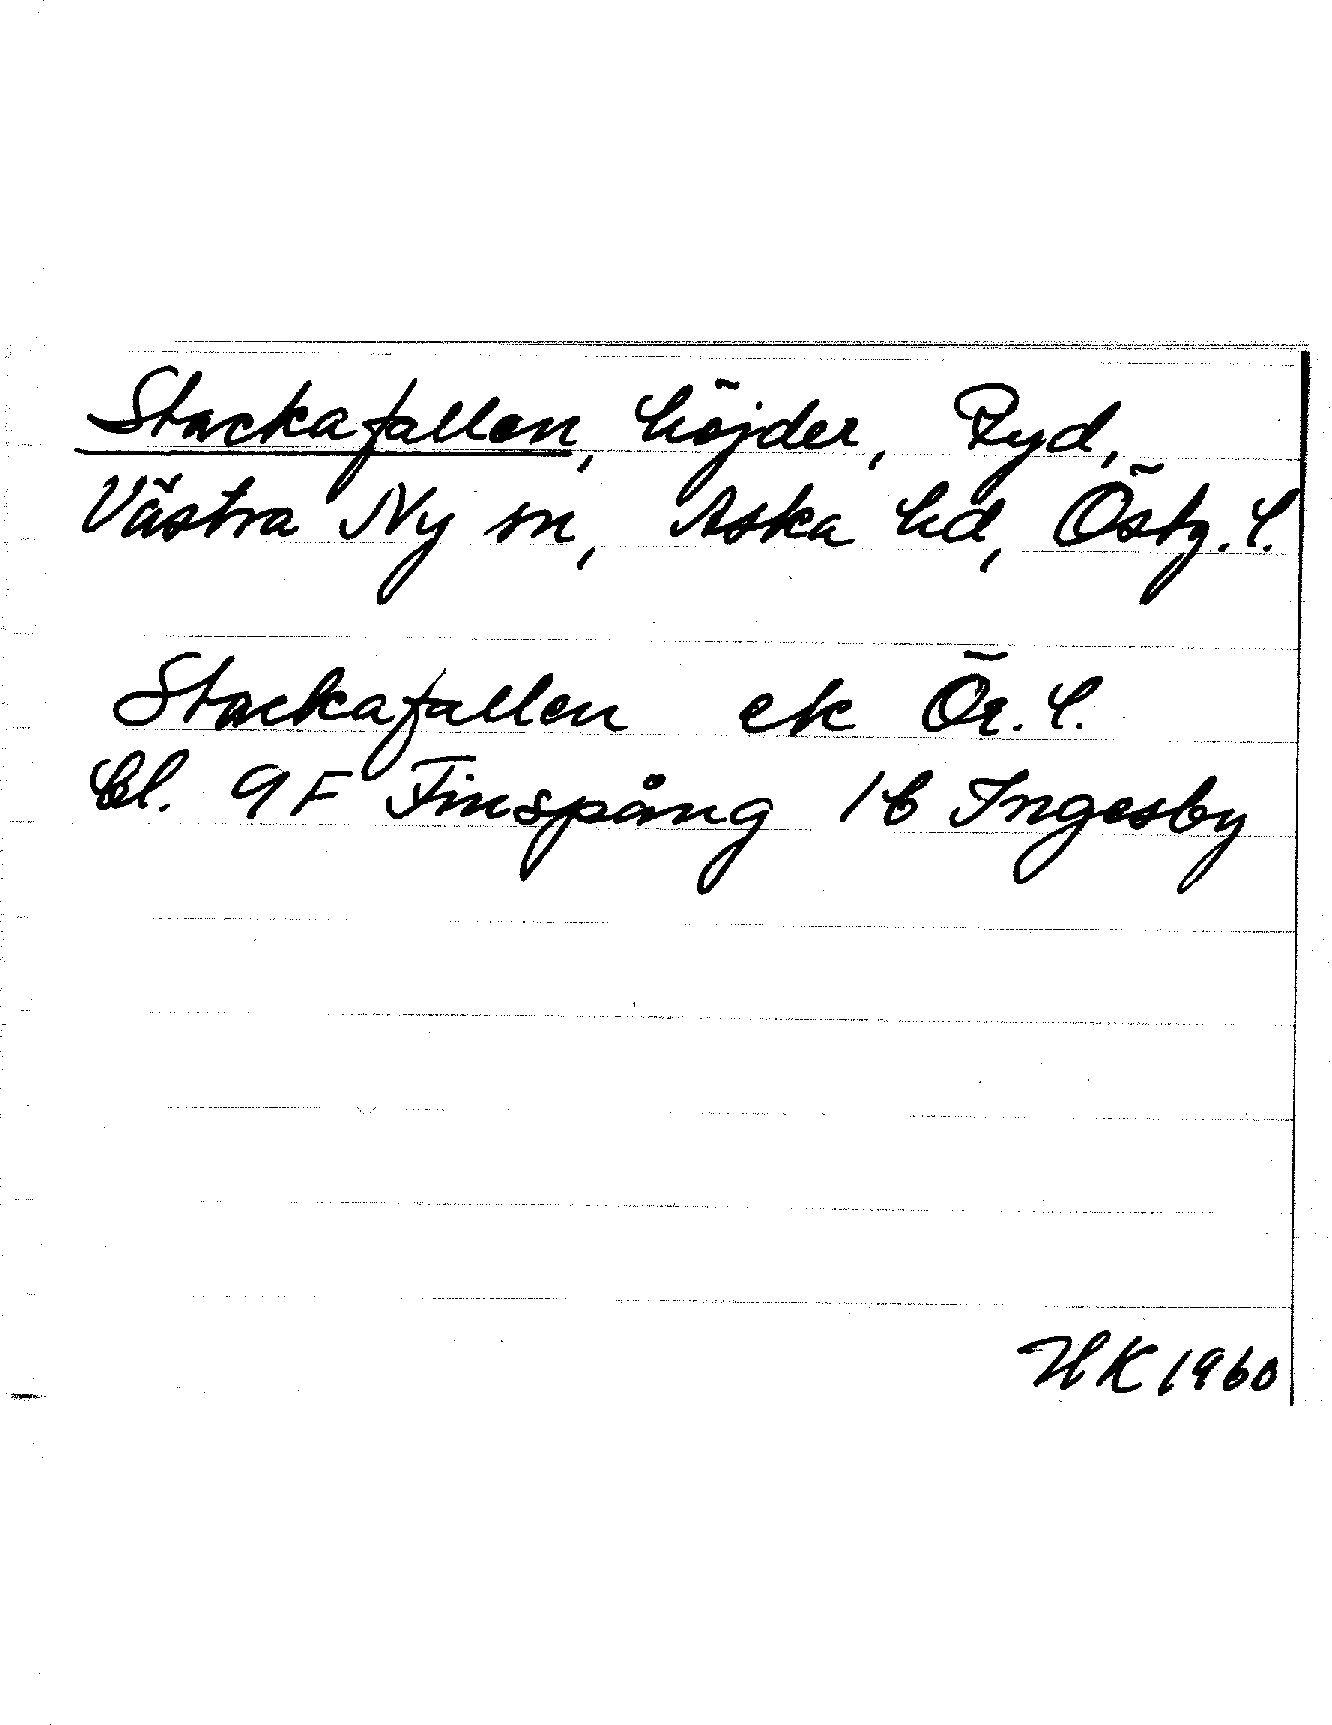 Stackafallen, höjder, Ryd,
Västra Ny sn, Aska hd, Östg. l.
Stackafallen ek Ör. l.
bl. 9 F Finspång 1 b Ingesby
HK 1960